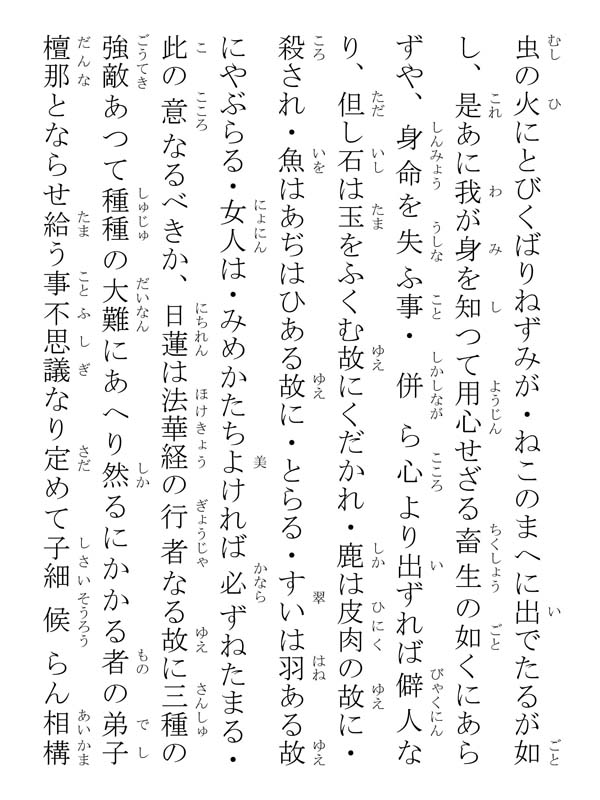 虫の火にとびくばりねずみが・ねこのまへに出でたるが如
し、是あに我が身を知つて用心せざる畜生の如くにあら
ずや、身命を失ふ事・併ら心より出ずれば僻人な
り、但し石は玉をふくむ故にくだかれ・鹿は皮肉の故に・
殺され・魚はあぢはひある故に・とらる・すいは羽ある故
にやぶらる・女人は・みめかたちよければ必ずねたまる・
此の意なるべきか、日蓮は法華経の行者なる故に三種の
強敵あつて種種の大難にあへり然るにかかる者の弟子
檀那とならせ給う事不思議なり定めて子細候らん相構